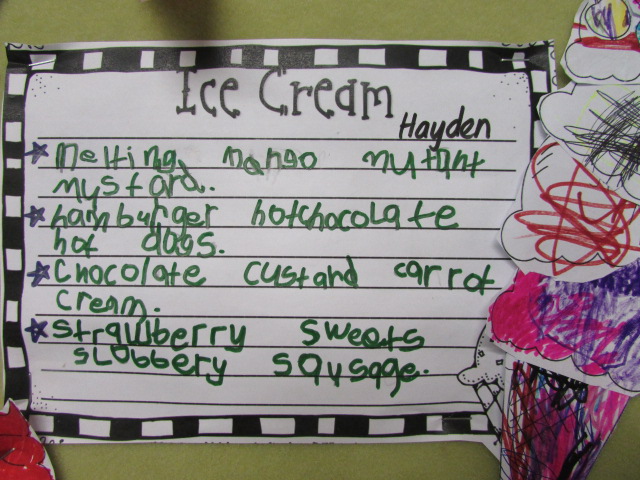 Ice Cream
Hayden
melting mango mutant
mustard.
hamburger hotchocolate
hot dogs.
Chocolate custard carrot
cream.
strawberry sweets
slobbery sausage.